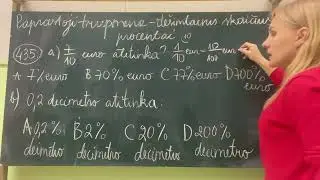 Paprastoji trupmena - dešimtainis skaičius
procentai
435) a) 7/10 euro atitinka? 1/10 eur = 10/100 eur
A 7% euro B 70% euro C 77% euro D 700% euro
b) 0,2 decimetro atitinka:
A 0,2% decimetro B 2% decimetro C 20% decimetro D 200% decimetro